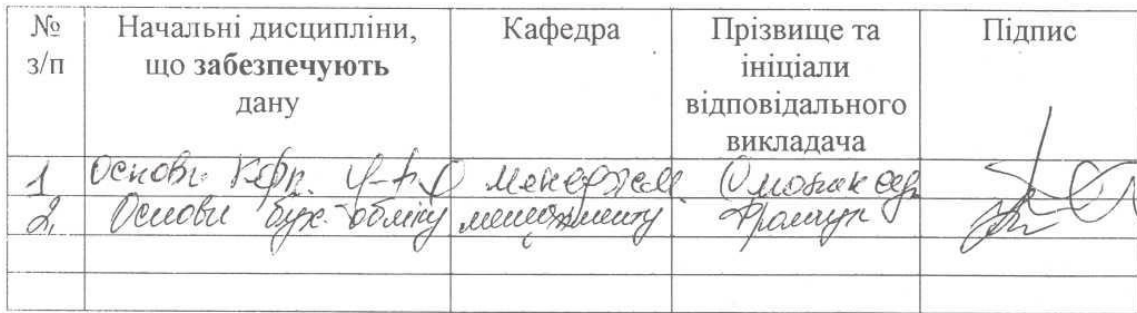 № з/п
Начальні дисципліни, що забезпечують дану
Кафедра
Прізвище та ініціали відповідального викладача
Підпис
1 Основи
2, Основи бух. обліку менеджменту